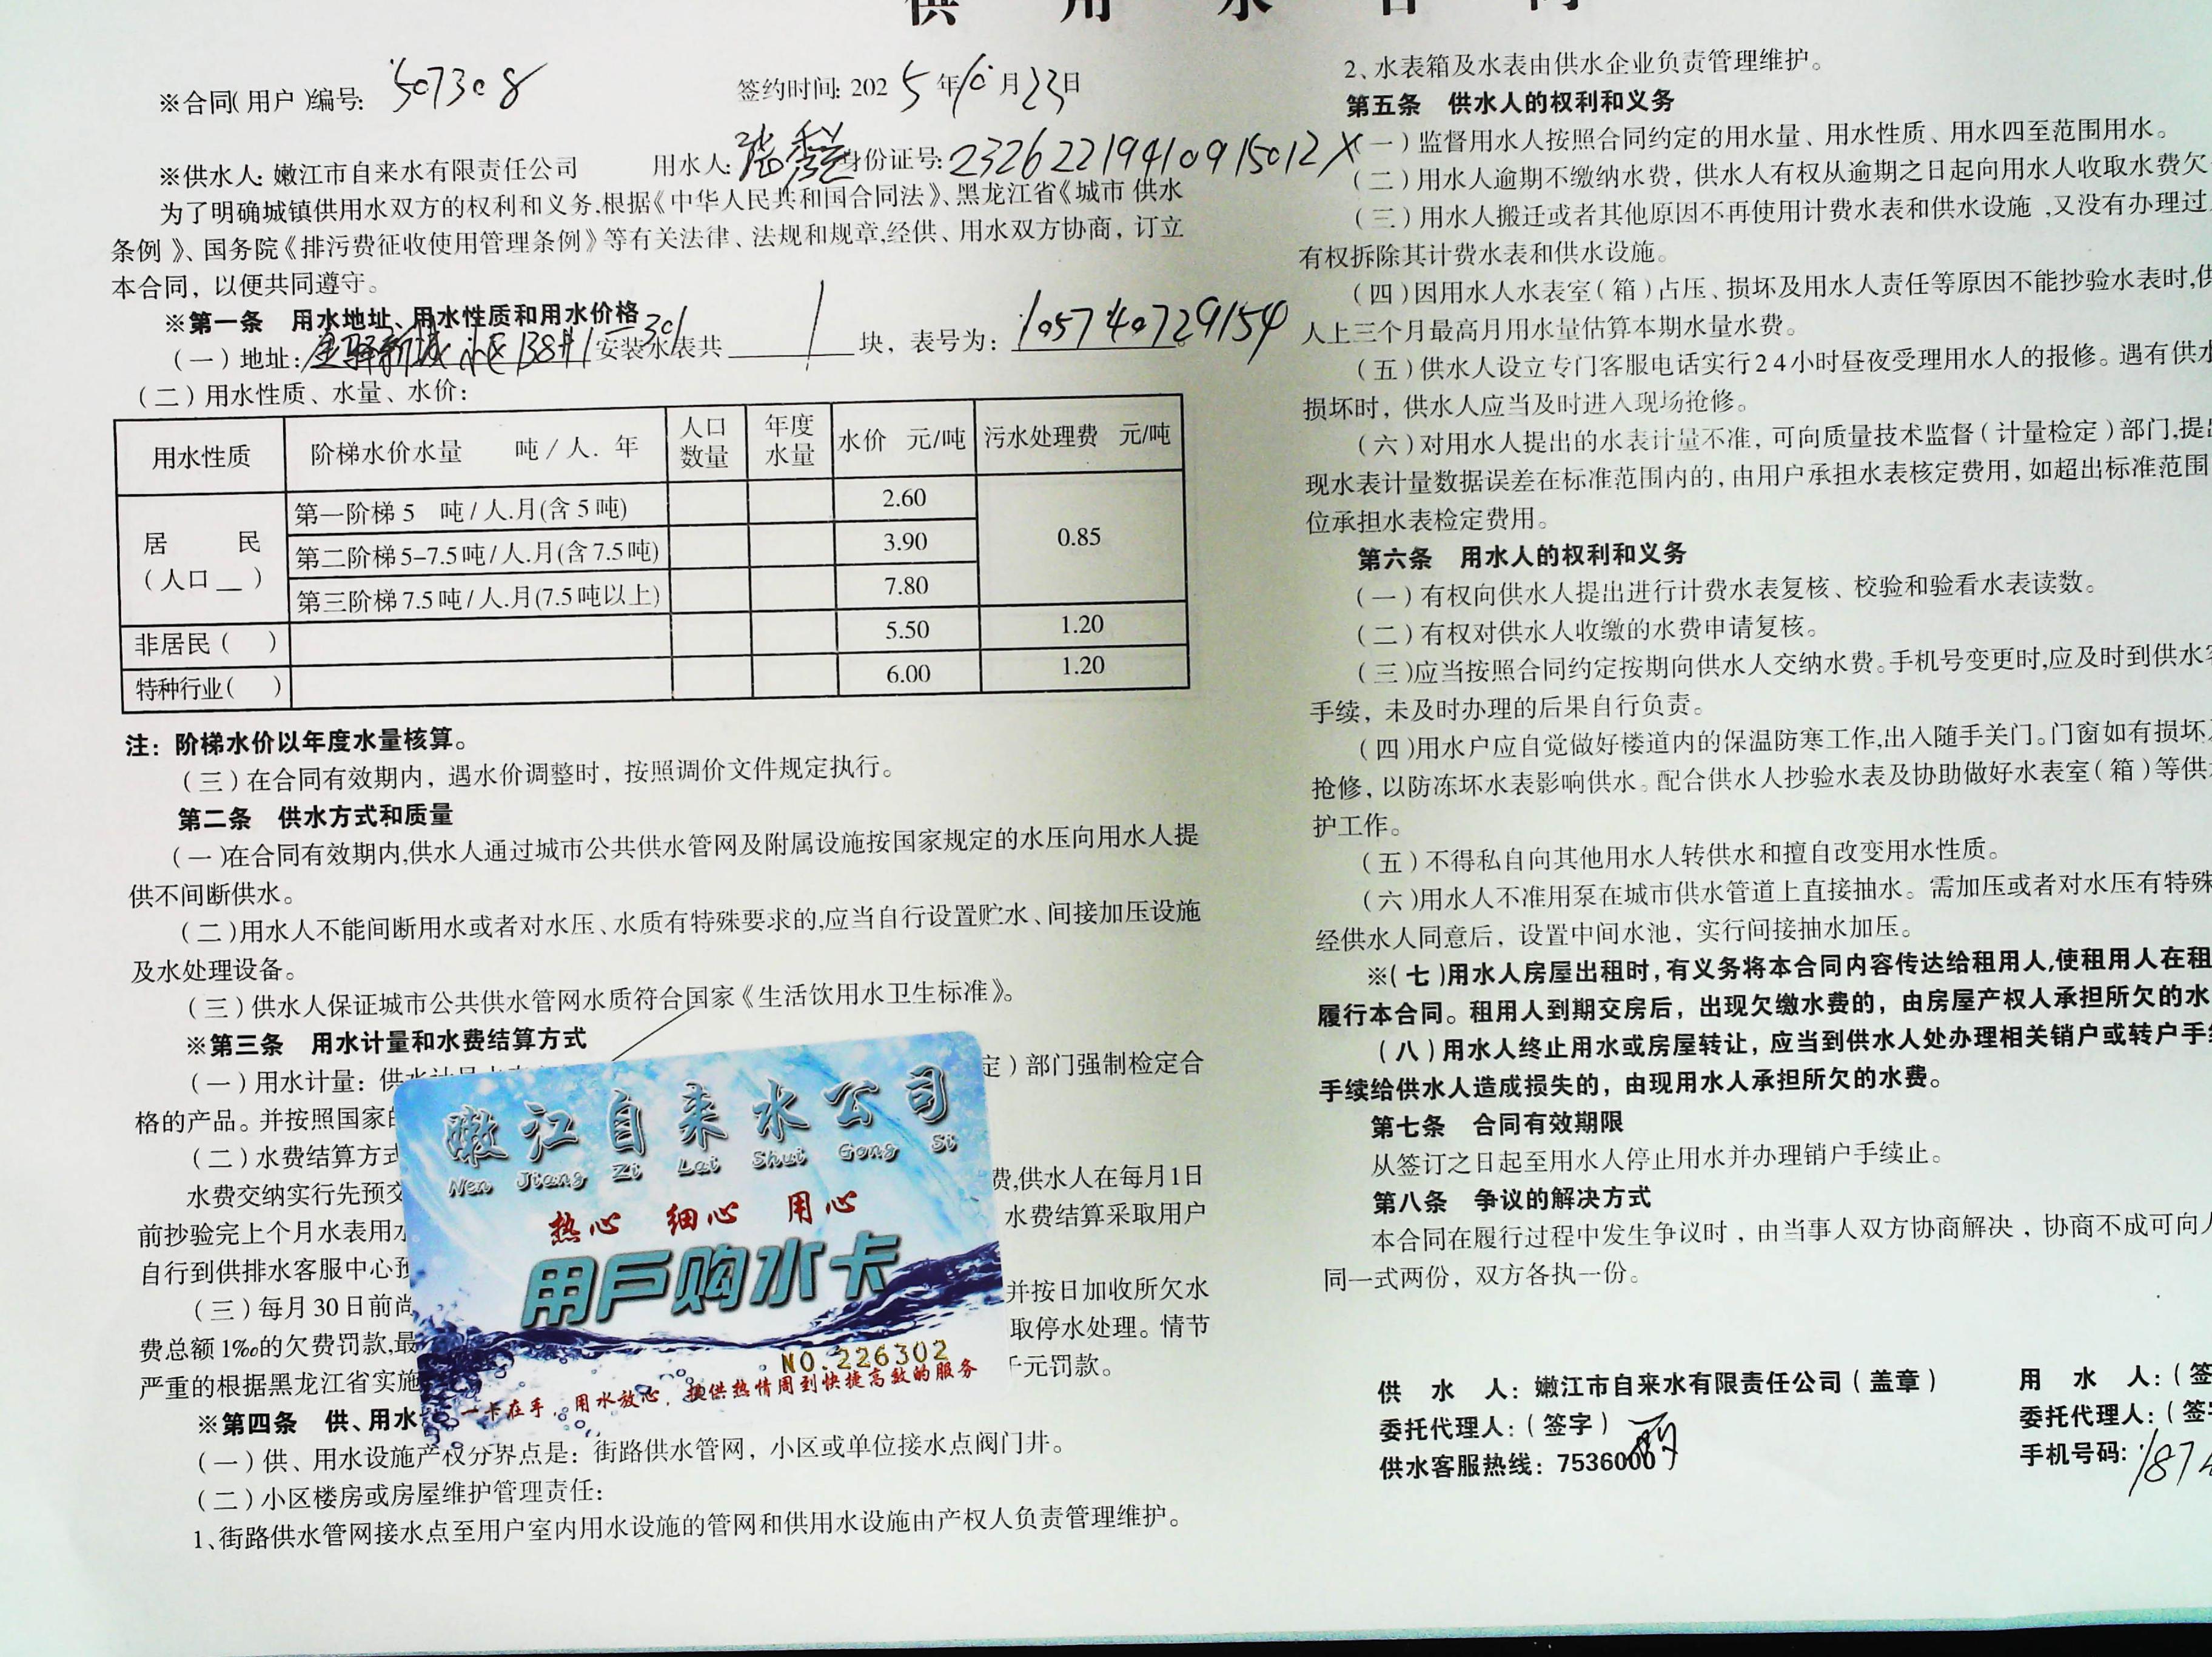 供用水合同
※合同(用户)编号: 507308 签约时间: 2025年10月23日
※供水人: 嫩江市自来水有限责任公司 用水人: 张 身份证号: 23262219410915012X
为了明确城镇供用水双方的权利和义务,根据《中华人民共和国合同法》、黑龙江省《城市 供水
条例》、国务院《排污费征收使用管理条例》等有关法律、法规和规章,经供、用水双方协商，订立
本合同，以便共同遵守。
※第一条 用水地址、用水性质和用水价格
(一)地址: 新城小区138# 301 安装水表共 1 块，表号为: 105740729154
(二)用水性质、水量、水价:
用水性质 阶梯水价水量 吨/人.年 人口数量 年度水量 水价 元/吨 污水处理费 元/吨
居 民 (人口__) 第一阶梯 5 吨/人.月(含 5 吨) 2.60 0.85
第二阶梯 5–7.5 吨/人.月(含 7.5 吨) 3.90
第三阶梯 7.5 吨/人.月(7.5 吨以上) 7.80
非居民( ) 5.50 1.20
特种行业( ) 6.00 1.20
注：阶梯水价以年度水量核算。
(三)在合同有效期内，遇水价调整时，按照调价文件规定执行。
第二条 供水方式和质量
(一)在合同有效期内,供水人通过城市公共供水管网及附属设施按国家规定的水压向用水人提
供不间断供水。
(二)用水人不能间断用水或者对水压、水质有特殊要求的,应当自行设置贮水、间接加压设施
及水处理设备。
(三)供水人保证城市公共供水管网水质符合国家《生活饮用水卫生标准》。
※第三条 用水计量和水费结算方式
(一)用水计量：供水计量 定)部门强制检定合
格的产品。并按照国家
(二)水费结算方式
水费交纳实行先预交 费,供水人在每月1日
前抄验完上个月水表用水 水费结算采取用户
自行到供排水客服中心预
(三)每月 30 日前尚 并按日加收所欠水
费总额 1‰的欠费罚款,最 取停水处理。情节
严重的根据黑龙江省实施 千元罚款。
※第四条 供、用水
(一)供、用水设施产权分界点是：街路供水管网，小区或单位接水点阀门井。
(二)小区楼房或房屋维护管理责任:
1、街路供水管网接水点至用户室内用水设施的管网和供用水设施由产权人负责管理维护。
嫩江自来水公司
Nen Jiang Zi Lai Shui Gong Si
热心 细心 用心
用户购水卡
NO.226302
一卡在手，用水放心，提供热情周到快捷高效的服务
2、水表箱及水表由供水企业负责管理维护。
第五条 供水人的权利和义务
(一)监督用水人按照合同约定的用水量、用水性质、用水四至范围用水。
(二)用水人逾期不缴纳水费，供水人有权从逾期之日起向用水人收取水费欠
(三)用水人搬迁或者其他原因不再使用计费水表和供水设施,又没有办理过
有权拆除其计费水表和供水设施。
(四)因用水人水表室(箱)占压、损坏及用水人责任等原因不能抄验水表时,供
人上三个月最高月用水量估算本期水量水费。
(五)供水人设立专门客服电话实行24小时昼夜受理用水人的报修。遇有供水
损坏时，供水人应当及时进入现场抢修。
(六)对用水人提出的水表计量不准，可向质量技术监督(计量检定)部门,提出
现水表计量数据误差在标准范围内的,由用户承担水表核定费用,如超出标准范围
位承担水表检定费用。
第六条 用水人的权利和义务
(一)有权向供水人提出进行计费水表复核、校验和验看水表读数。
(二)有权对供水人收缴的水费申请复核。
(三)应当按照合同约定按期向供水人交纳水费。手机号变更时,应及时到供水客
手续，未及时办理的后果自行负责。
(四)用水户应自觉做好楼道内的保温防寒工作,出入随手关门。门窗如有损坏
抢修,以防冻坏水表影响供水。配合供水人抄验水表及协助做好水表室(箱)等供
护工作。
(五)不得私自向其他用水人转供水和擅自改变用水性质。
(六)用水人不准用泵在城市供水管道上直接抽水。需加压或者对水压有特殊
经供水人同意后，设置中间水池，实行间接抽水加压。
※(七)用水人房屋出租时,有义务将本合同内容传达给租用人,使租用人在租
履行本合同。租用人到期交房后，出现欠缴水费的，由房屋产权人承担所欠的水
(八)用水人终止用水或房屋转让，应当到供水人处办理相关销户或转户手续
手续给供水人造成损失的，由现用水人承担所欠的水费。
第七条 合同有效期限
从签订之日起至用水人停止用水并办理销户手续止。
第八条 争议的解决方式
本合同在履行过程中发生争议时，由当事人双方协商解决，协商不成可向人
同一式两份，双方各执一份。
供 水 人：嫩江市自来水有限责任公司(盖章) 用 水 人：(签
委托代理人：(签字) 委托代理人：(签字
供水客服热线：7536000 手机号码: 187